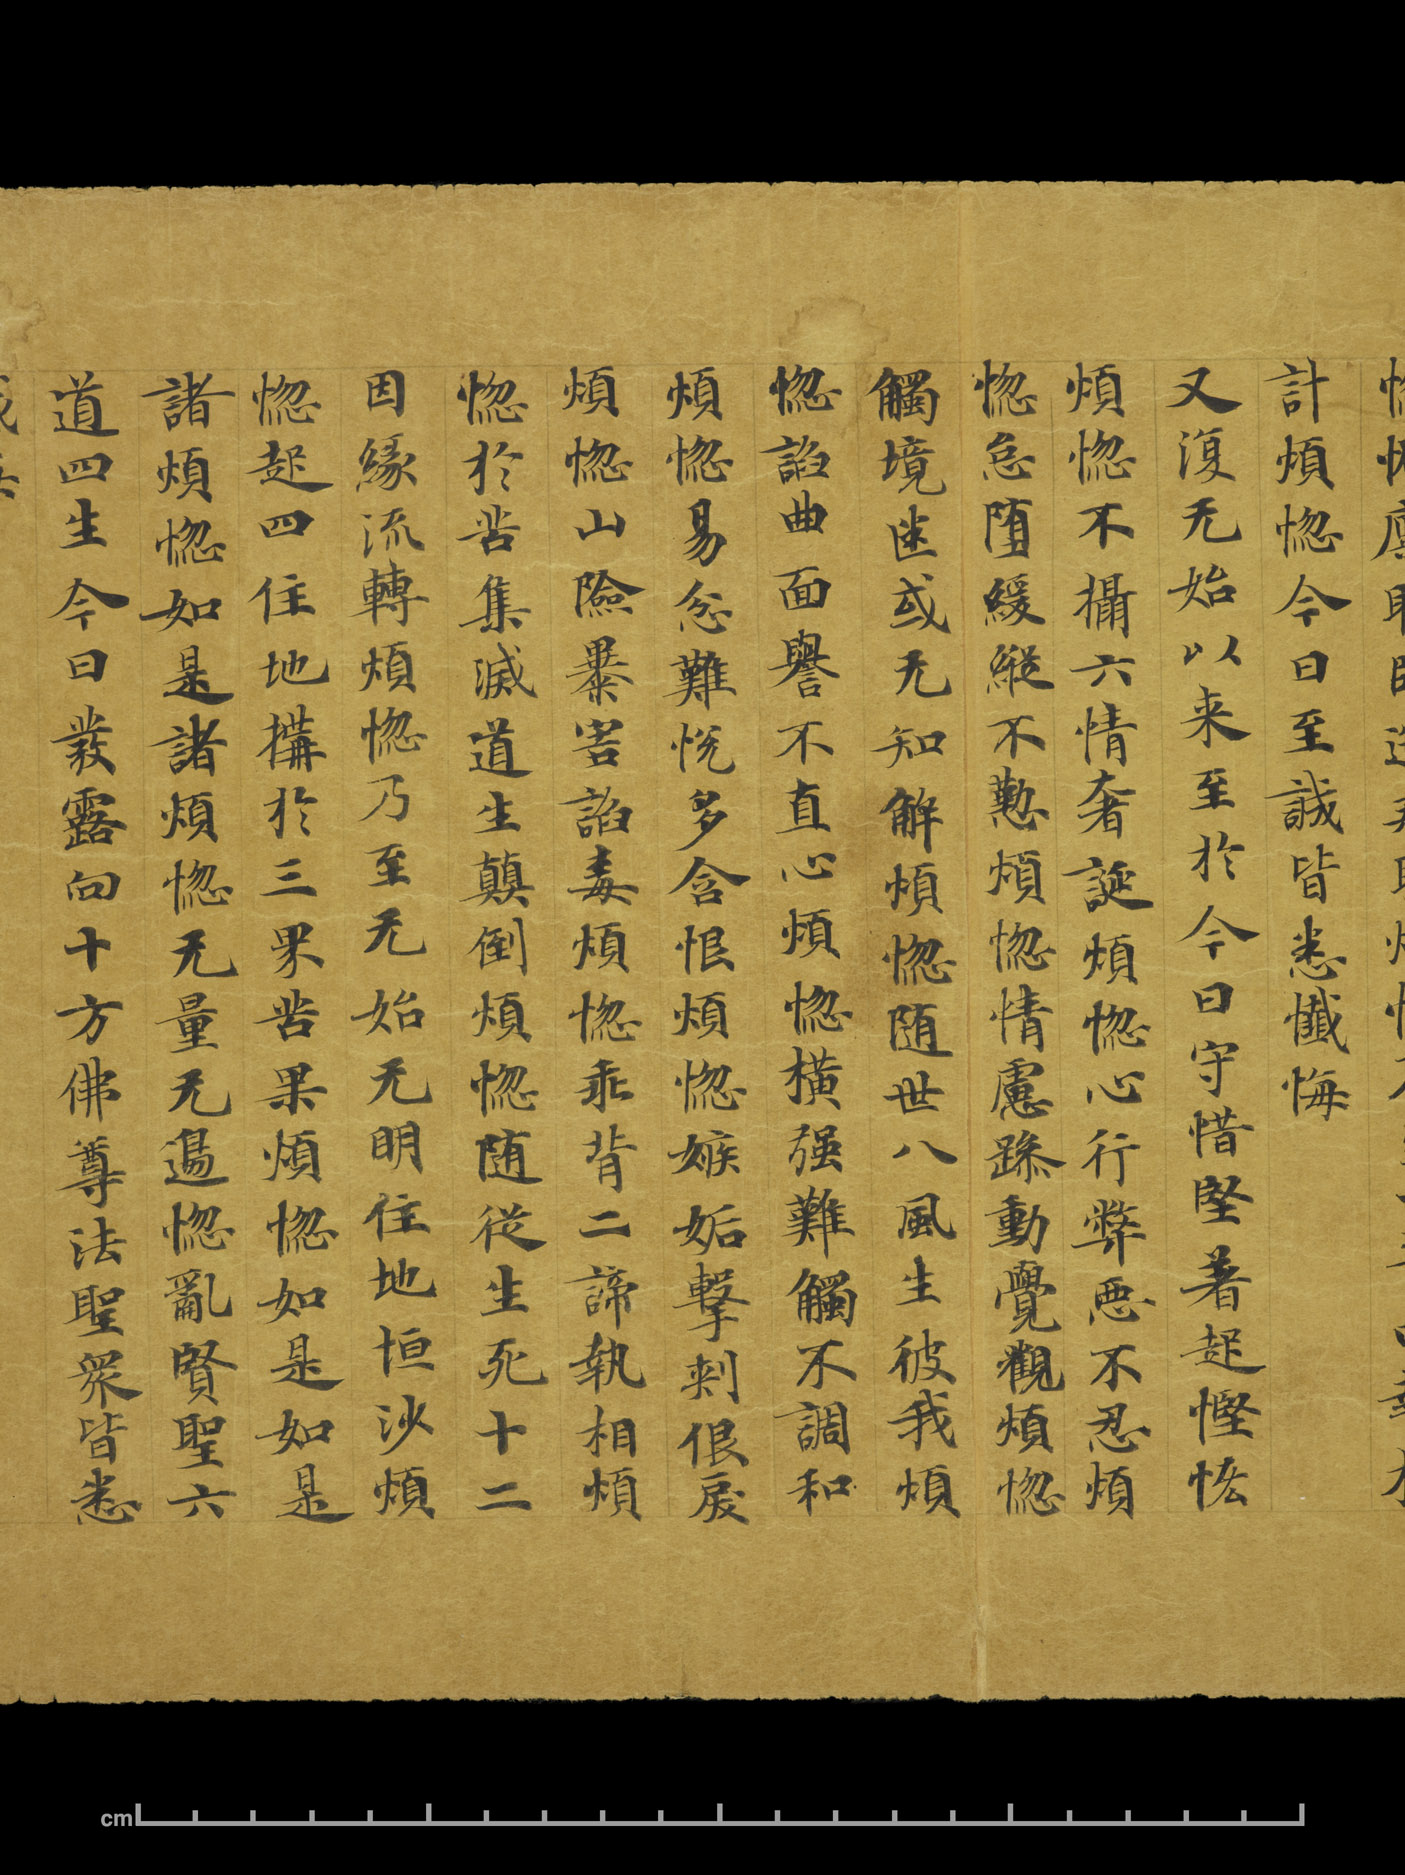 計煩惚今日至誠皆悉懺悔
又復无始以来至於今日守惜堅著起慳悋
煩惚不攝六情奢誕煩惚心行弊惡不忍煩
惚怠墮緩縱不懃煩惚情慮躁動覺觀煩惚
觸境迷或无知解煩惚随世八風生彼我煩
惚諂曲面譽不直心煩惚橫强難觸不調和
煩惚易忿難悅多含恨煩惚嫉妬擊刺佷戾
煩惚山險暴害諂毒煩惚乖背二諦執相煩
惚於苦集滅道生顛倒煩惚随從生死十二
因緣流轉煩惚乃至无始无明住地恒沙煩
惚起四住地構於三界苦果煩惚如是如是
諸煩惚如是諸煩惚无量无邊惚亂賢聖六
道四生今日發露向十方佛尊法聖衆皆悉